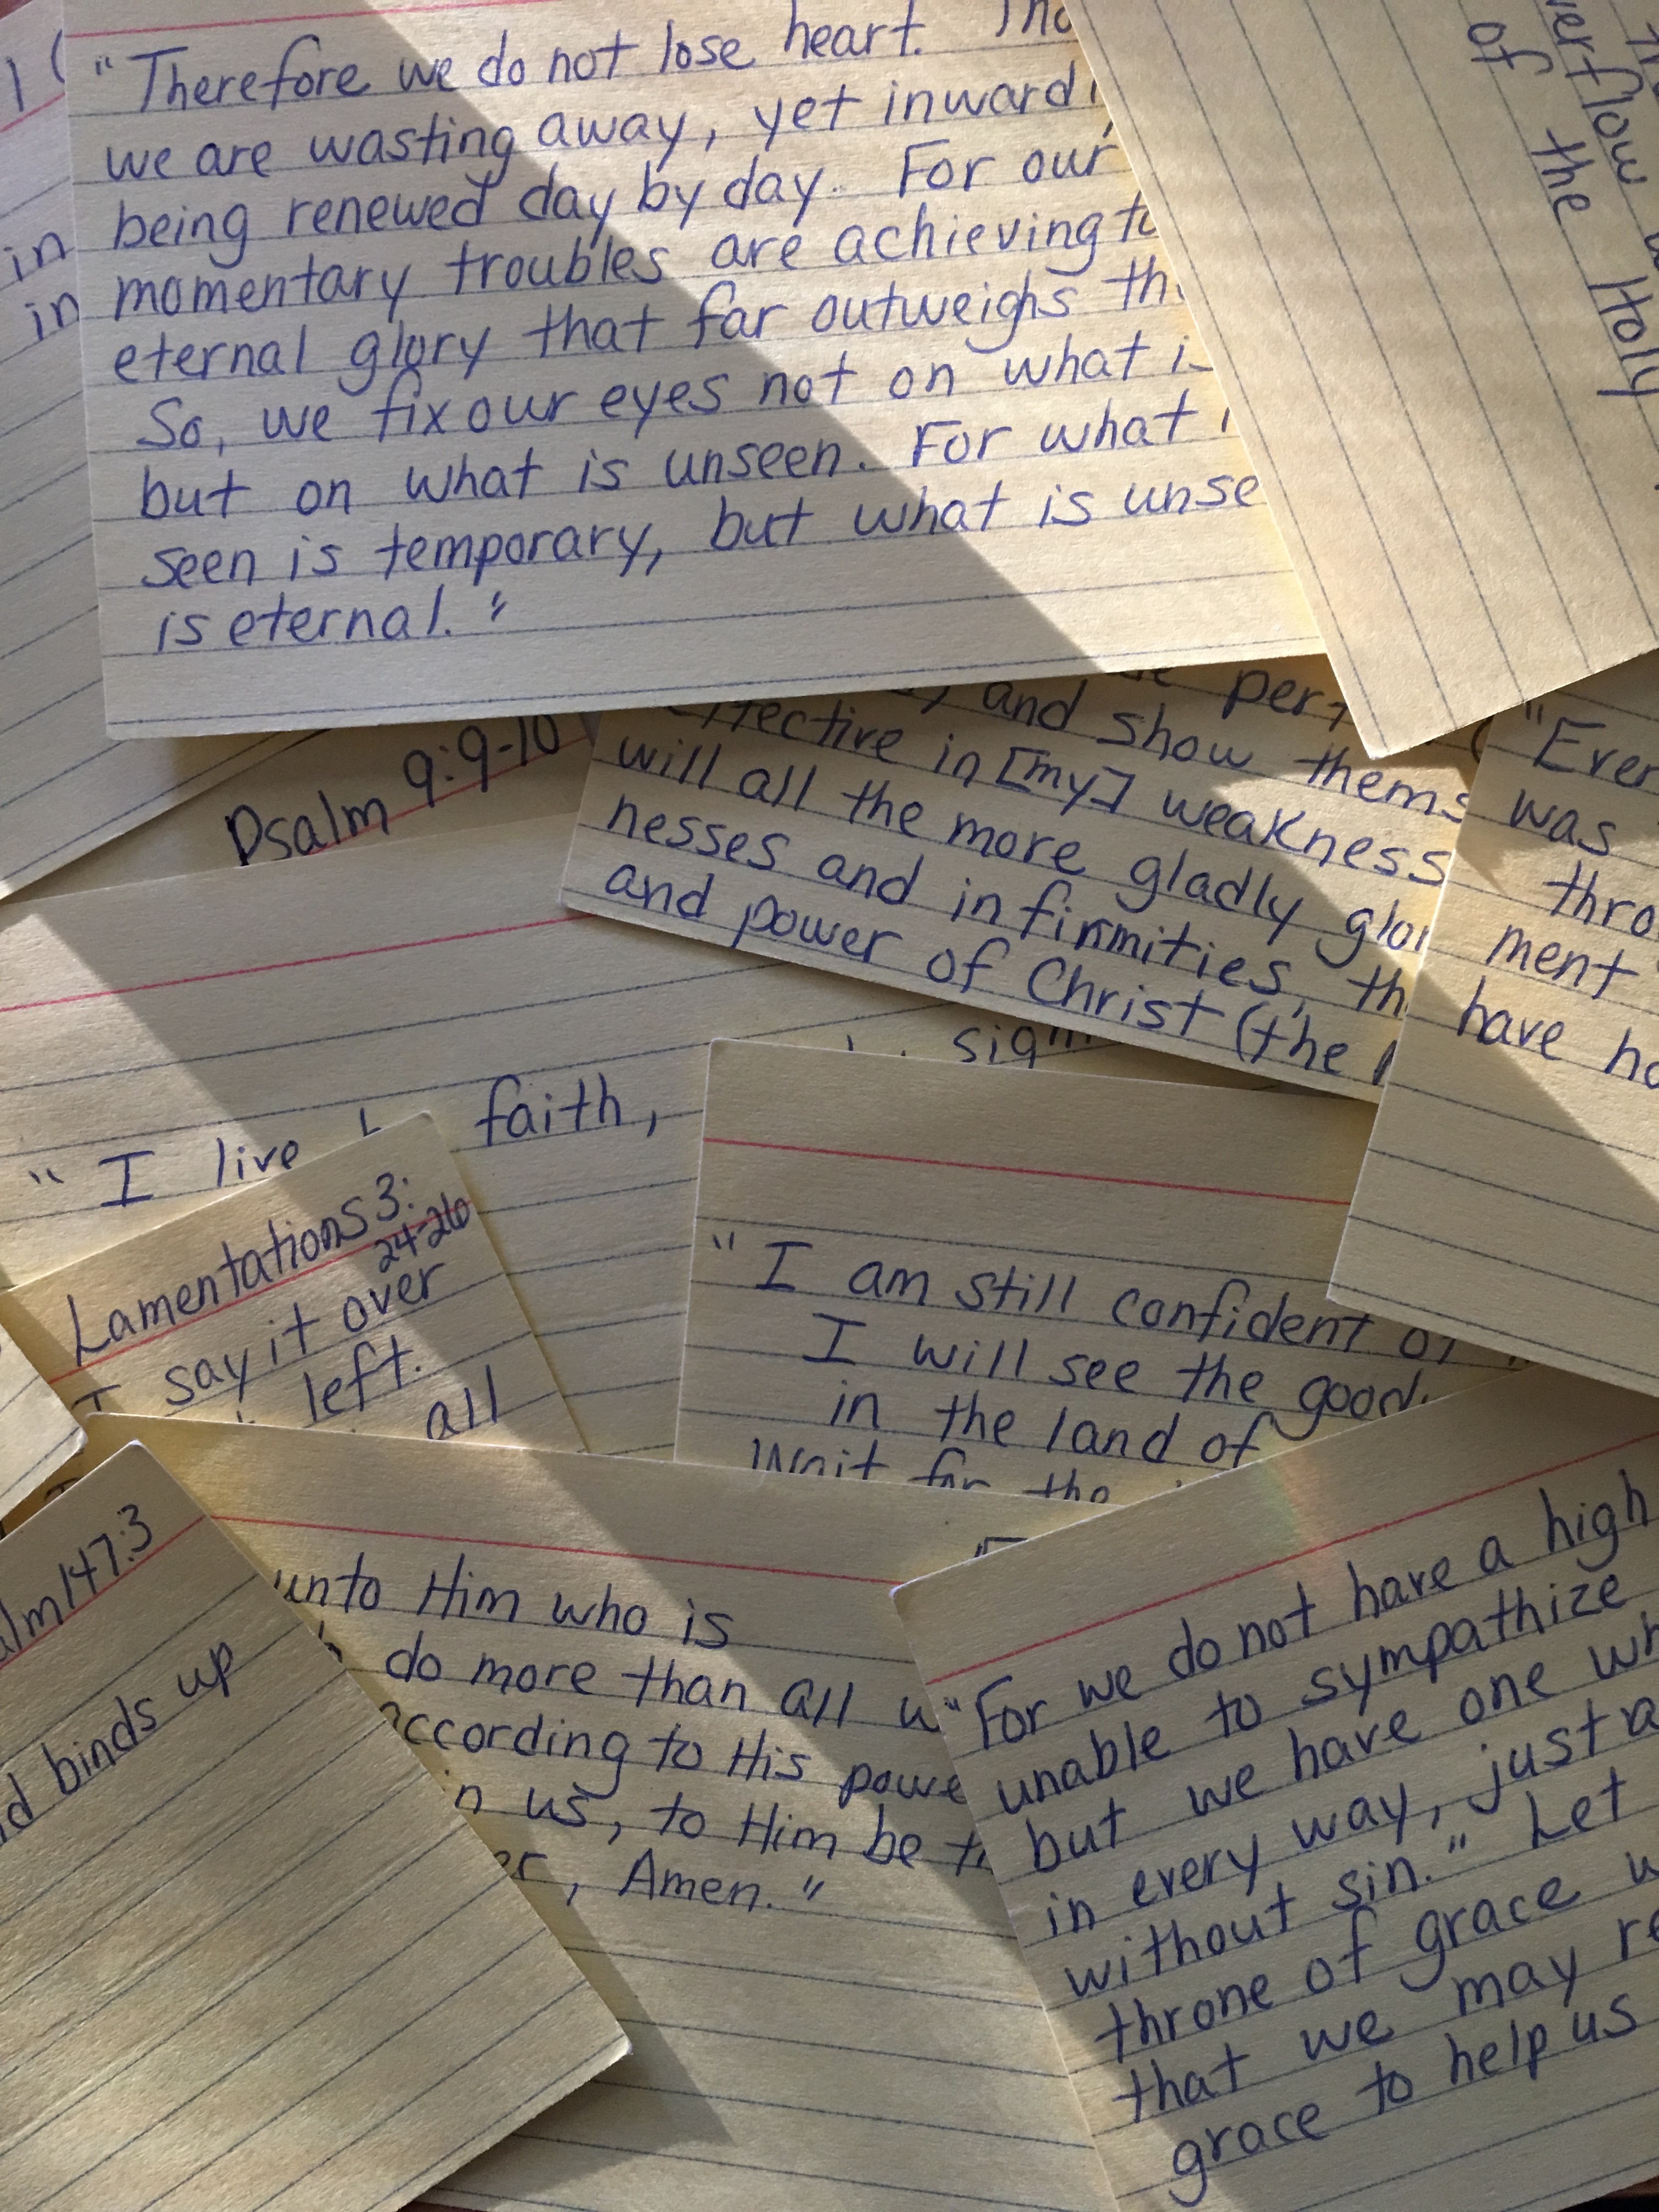 "Therefore we do not lose heart.
we are wasting away, yet inward
being renewed day by day. For our
momentary troubles are achieving
eternal glory that far outweighs
So, we fix our eyes not on what
but on what is unseen. For what
seen is temporary, but what is
is eternal."
of the Holy
in
in
Psalm 9:9-10
and show
in [my] weakness
will all the more gladly
nesses and infirmities,
and power of Christ (the
"Ever
was
thro
ment
have
"I live faith,
Lamentations 3:
24-26
I say it over
left.
all
"I am still confident of
I will see the good
in the land of
Wait for the
Psalm 147:3
binds up
unto Him who is
do more than all
according to His
in us, to Him be
Amen."
"For we do not have a high
unable to sympathize
but we have one
in every way, just
without sin." Let
throne of grace
that we may
grace to help us